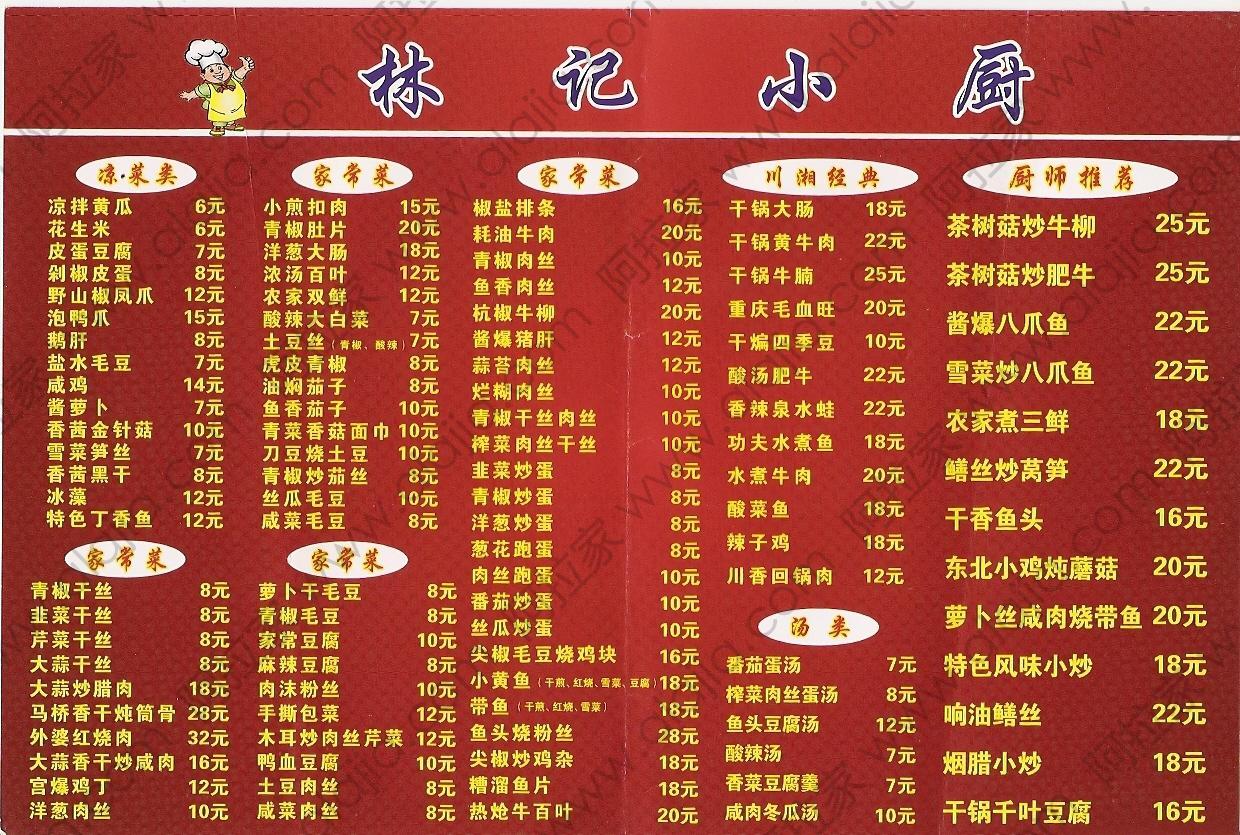 林记小厨
凉·菜类
凉拌黄瓜 6元
花生米 6元
皮蛋豆腐 7元
剁椒皮蛋 8元
野山椒凤爪 12元
泡鸭爪 15元
鹅肝 8元
盐水毛豆 7元
咸鸡 14元
酱萝卜 7元
香茜金针菇 10元
雪菜笋丝 7元
香茜黑干 8元
冰藻 12元
特色丁香鱼 12元
家常菜
青椒干丝 8元
韭菜干丝 8元
芹菜干丝 8元
大蒜干丝 8元
大蒜炒腊肉 18元
马桥香干炖筒骨 28元
外婆红烧肉 32元
大蒜香干炒咸肉 16元
宫爆鸡丁 12元
洋葱肉丝 10元
家常菜
小煎扣肉 15元
青椒肚片 20元
洋葱大肠 18元
浓汤百叶 12元
农家双鲜 12元
酸辣大白菜 7元
土豆丝(青椒、酸辣) 7元
虎皮青椒 8元
油焖茄子 8元
鱼香茄子 10元
青菜香菇面巾 10元
刀豆烧土豆 10元
青椒炒茄丝 8元
丝瓜毛豆 10元
咸菜毛豆 8元
家常菜
萝卜干毛豆 8元
青椒毛豆 8元
家常豆腐 10元
麻辣豆腐 8元
肉沫粉丝 10元
手撕包菜 12元
木耳炒肉丝芹菜 12元
鸭血豆腐 10元
土豆肉丝 8元
咸菜肉丝 8元
家常菜
椒盐排条 16元
耗油牛肉 20元
青椒肉丝 10元
鱼香肉丝 12元
杭椒牛柳 20元
酱爆猪肝 12元
蒜苔肉丝 12元
烂糊肉丝 10元
青椒干丝肉丝 10元
榨菜肉丝干丝 10元
韭菜炒蛋 8元
青椒炒蛋 8元
洋葱炒蛋 8元
葱花跑蛋 8元
肉丝跑蛋 10元
番茄炒蛋 10元
丝瓜炒蛋 10元
尖椒毛豆烧鸡块 16元
小黄鱼(干煎、红烧、雪菜、豆腐) 18元
带鱼(干煎、红烧、雪菜) 18元
鱼头烧粉丝 28元
尖椒炒鸡杂 18元
糟溜鱼片 18元
热炝牛百叶 20元
川湘经典
干锅大肠 18元
干锅黄牛肉 22元
干锅牛腩 25元
重庆毛血旺 20元
干煸四季豆 10元
酸汤肥牛 22元
香辣泉水蛙 22元
功夫水煮鱼 18元
水煮牛肉 20元
酸菜鱼 18元
辣子鸡 18元
川香回锅肉 12元
汤类
番茄蛋汤 7元
榨菜肉丝蛋汤 8元
鱼头豆腐汤 12元
酸辣汤 7元
香菜豆腐羹 7元
咸肉冬瓜汤 10元
厨师推荐
茶树菇炒牛柳 25元
茶树菇炒肥牛 25元
酱爆八爪鱼 22元
雪菜炒八爪鱼 22元
农家煮三鲜 18元
鳝丝炒莴笋 22元
干香鱼头 16元
东北小鸡炖蘑菇 20元
萝卜丝咸肉烧带鱼 20元
特色风味小炒 18元
响油鳝丝 22元
烟腊小炒 18元
干锅千叶豆腐 16元
阿拉家 www.alajia.com